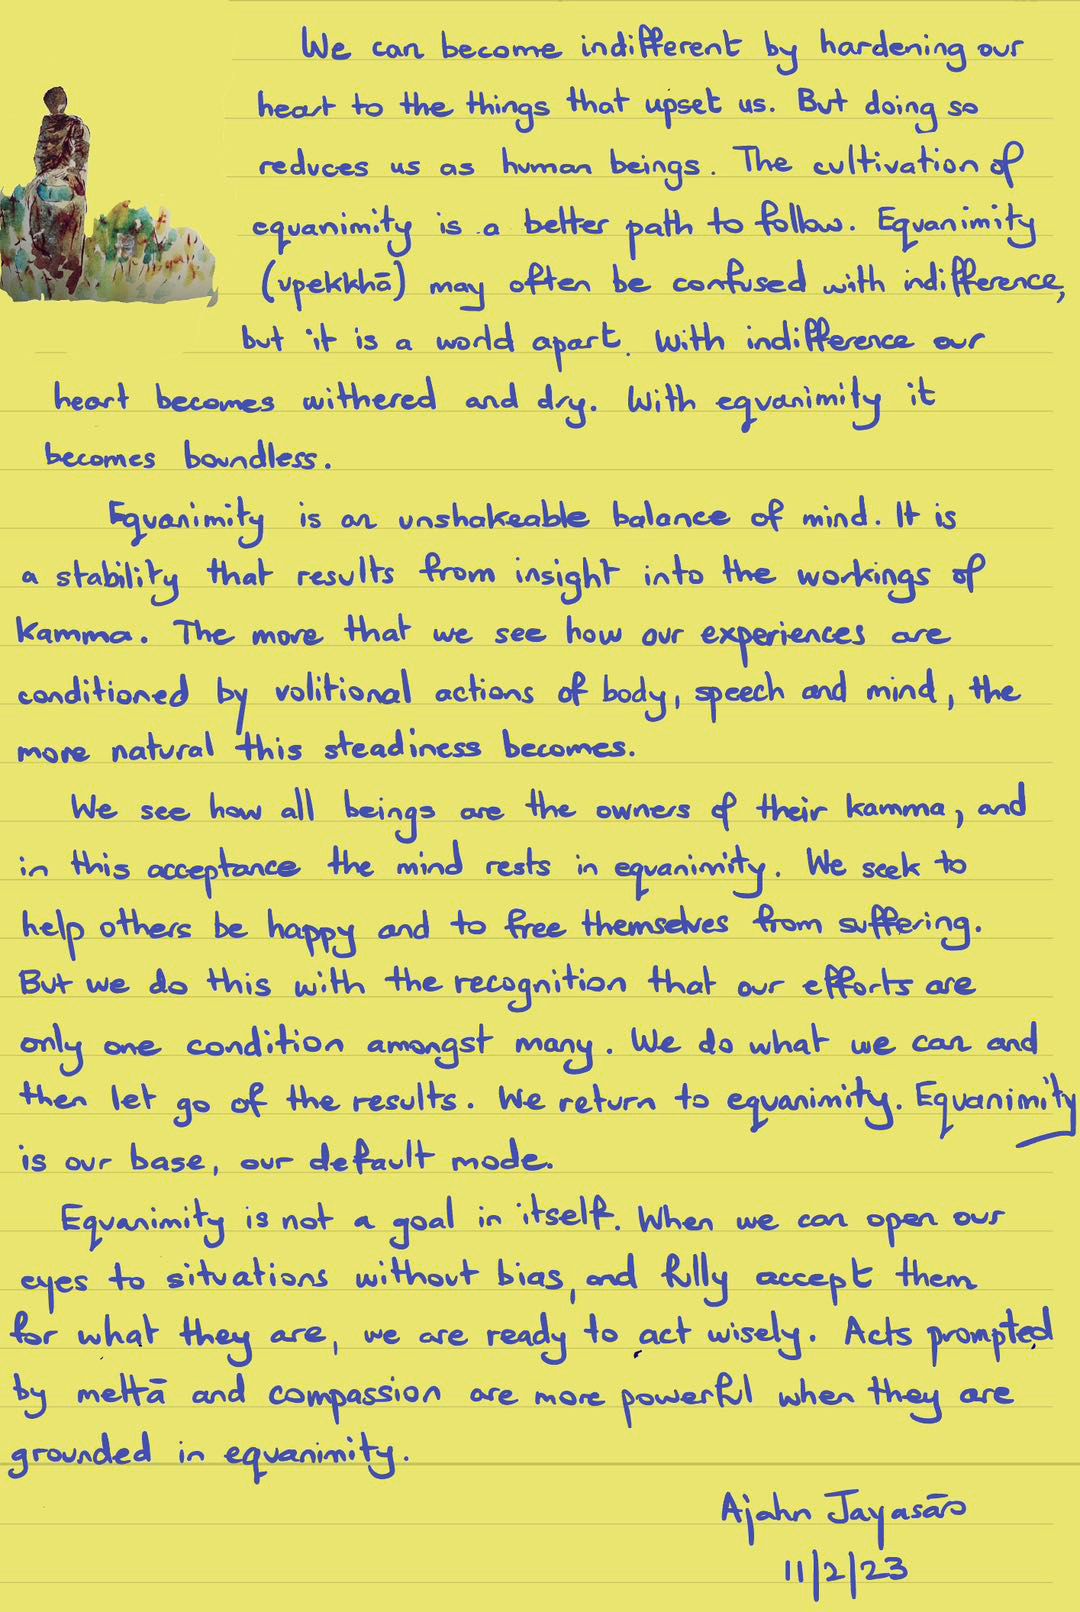 We can become indifferent by hardening our
heart to the things that upset us. But doing so
reduces us as human beings. The cultivation of
equanimity is a better path to follow. Equanimity
(upekkhā) may often be confused with indifference,
but it is a world apart. With indifference our
heart becomes withered and dry. With equanimity it
becomes boundless.
Equanimity is an unshakeable balance of mind. It is
a stability that results from insight into the workings of
kamma. The more that we see how our experiences are
conditioned by volitional actions of body, speech and mind, the
more natural this steadiness becomes.
We see how all beings are the owners of their kamma, and
in this acceptance the mind rests in equanimity. We seek to
help others be happy and to free themselves from suffering.
But we do this with the recognition that our efforts are
only one condition amongst many. We do what we can and
then let go of the results. We return to equanimity. Equanimity
is our base, our default mode.
Equanimity is not a goal in itself. When we can open our
eyes to situations without bias, and fully accept them
for what they are, we are ready to act wisely. Acts prompted
by mettā and compassion are more powerful when they are
grounded in equanimity.
Ajahn Jayasāro
11/2/23